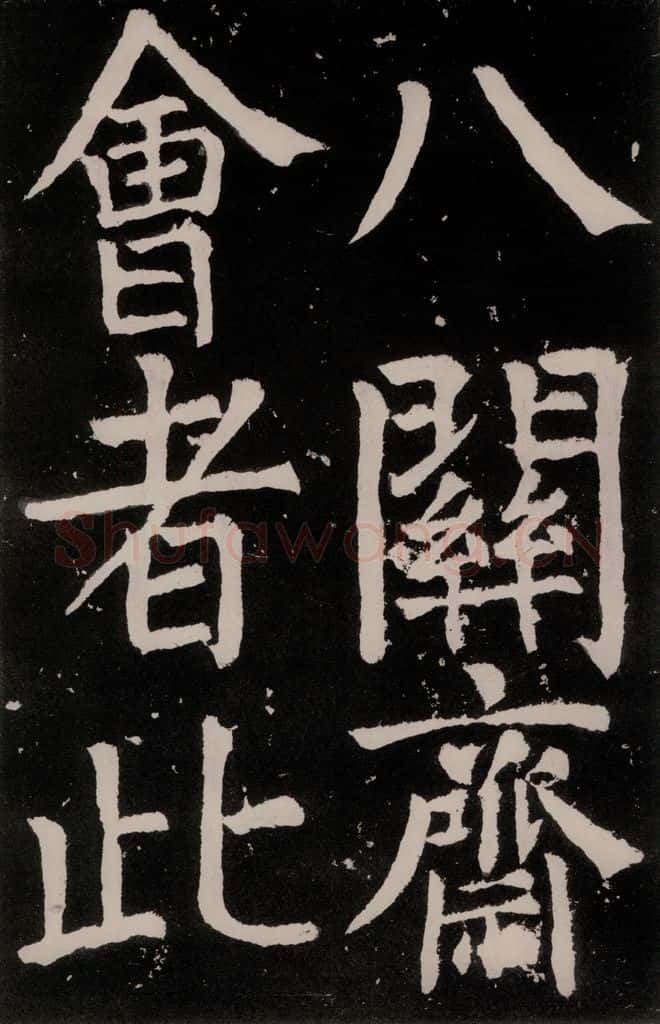 八關齋
會者此
Shufawang.CN